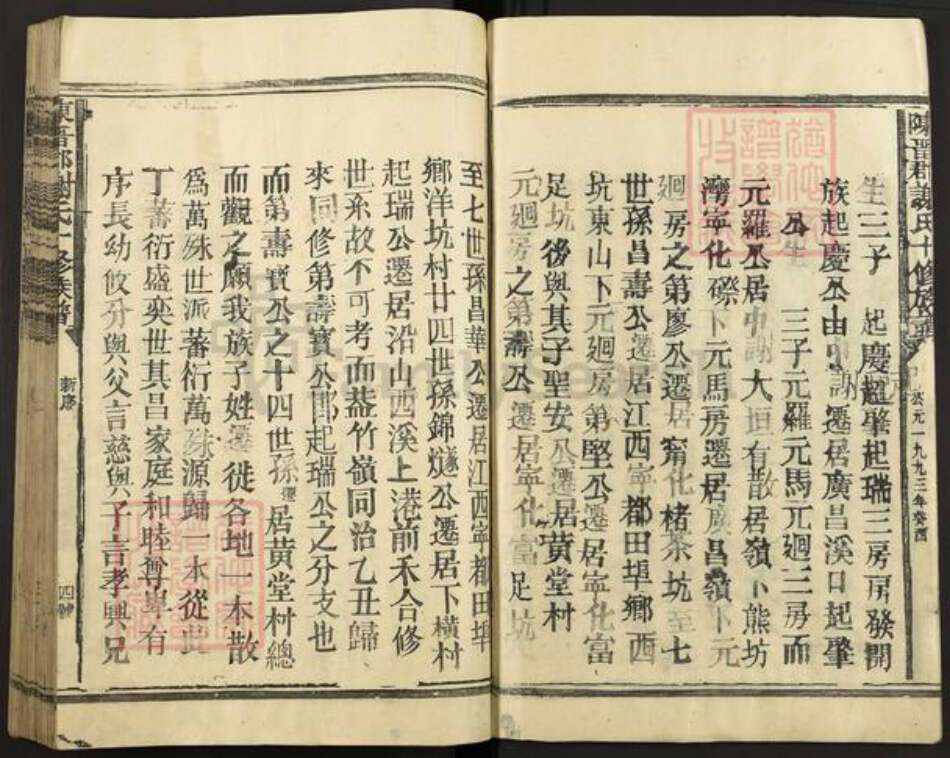 陳晉郡謝氏十修族譜
公元一九九三年癸酉
生三子 起慶超肇起瑞三房房發開
族起慶公由中謝遷居廣昌溪口起肇
公生 三子元羅元馬元廻三房而
元羅公居中謝大垣有散居嶺卜熊坊
灣寧化磜下元馬房遷居廣昌嶺卜元
廻房之第廖公遷居甯化楮茶坑至七
世孫昌壽公遷居江西寧都田埠鄉西
坑東山下元廻房第堅公遷居寧化富
足坑後與其子聖安公遷居黃堂村
元廻房之第壽公遷居寧化富足坑
至七世孫昌華公遷居江西寧都田埠
鄉洋坑村廿四世孫錦燧公遷居下橫村
起瑞公遷居沿山西溪上港前禾合修
世系故不可考而葢竹嶺同治乙丑歸
來同修第壽寳公即起瑞公之分支也
而第壽寳公之十四世孫遷居黄堂村總
而觀之願我族子姓遷徙各地一本散
爲萬殊世派蕃衍萬殊源歸一本從此
丁蕃衍盛奕世其昌家庭和睦尊卑有
序長幼攸分與父言慈與子言孝興兄
東晉郡謝氏十修族譜
新序
四